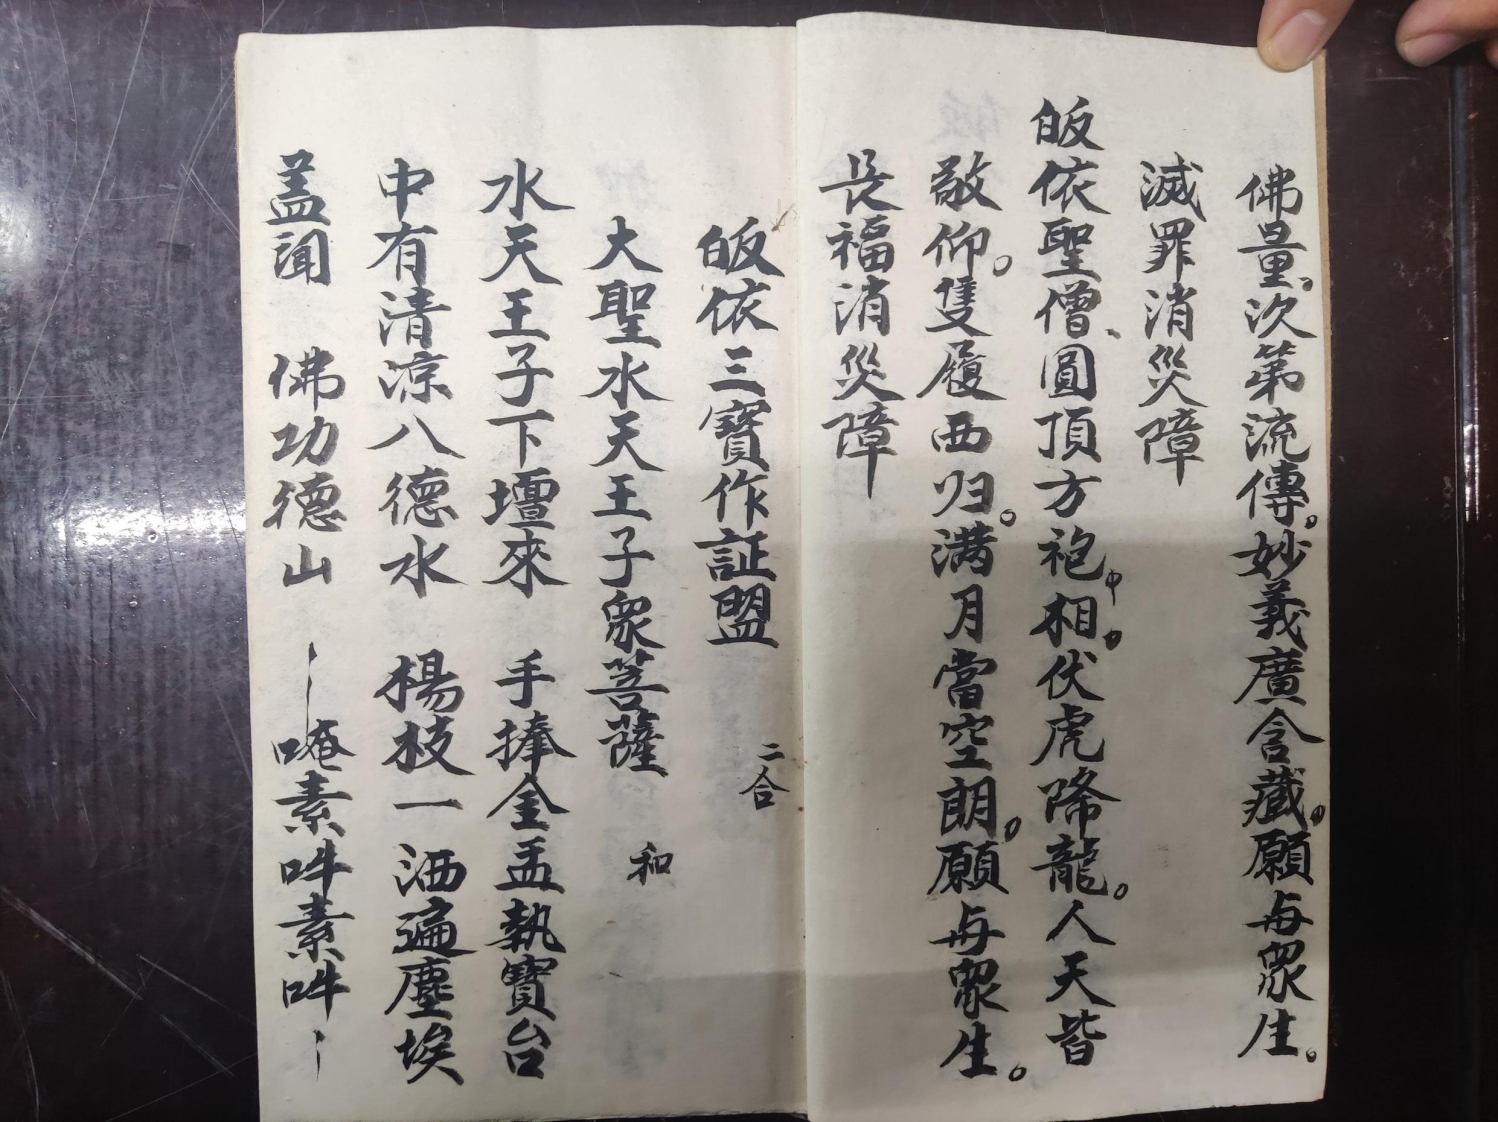 佛量。次第流傳。妙義廣含藏。願与眾生。
滅罪消災障
皈依聖僧、圓頂方袍中相。伏虎降龍。人天皆
敬仰。隻履西归。满月當空朗。願与眾生。
長福消災障
皈依三寶作証盟
二合
大聖水天王子眾菩薩
和
水天王子下壇來 手捧金盂執寶台
中有清凉八德水 楊枝一洒遍塵埃
盖闻 佛功德山 唵素吽素吽